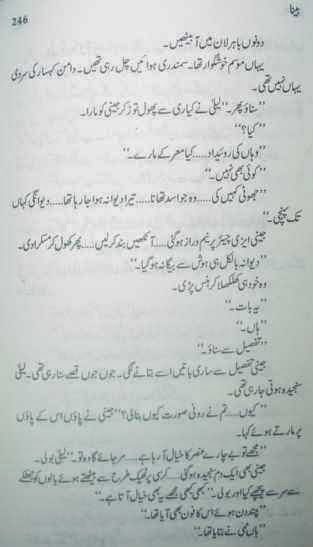 بینا
246
دونوں باہر لان میں آ بیٹھیں۔
یہاں موسم خوشگوار تھا۔ سمندری ہوائیں چل رہی تھیں۔ دامن کہسار کی سردی
یہاں نہیں تھی۔
”سناؤ پھر۔“ لیلیٰ نے کیاری سے پھول توڑ کر جینی کو مارا۔
”کیا؟“
”وہاں کی روئیداد.....کیا معرکے مارے۔“
”کوئی بھی نہیں۔“
”جھوٹی کہیں کی.....وہ جو اسد تھا نا.....تیرا دیوانہ ہوا جا رہا تھا.....دیوانگی کہاں
تک پہنچی۔“
جینی ایزی چیئر پر نیم دراز ہو گئی.....آنکھیں بند کر لیں.....پھر کھول کر مسکرا دی۔
”دیوانہ بالکل ہی ہوش سے بیگانہ ہو گیا۔“
وہ خود ہی کھلکھلا کر ہنس پڑی۔
”یہ بات۔“
”ہاں۔“
”تفصیل سے سناؤ۔“
جینی تفصیل سے ساری باتیں اسے بتانے لگی۔ جوں جوں قصے سنا رہی تھی۔ لیلیٰ
سنجیدہ ہوتی جا رہی تھی۔
”کیوں.....تم نے رونی صورت کیوں بنا لی؟“ جینی نے پاؤں اس کے پاؤں
پر مارتے ہوئے کہا۔
”مجھے تو بے چارے کا خیال آ رہا ہے.....مر جائے گا وہ تو۔“ لیلیٰ بولی۔
جینی بھی ایک دم سنجیدہ ہو گئی.....کرسی پر ٹھیک طرح سے بیٹھتے ہوئے بالوں کو جھٹکے
سے سر سے پیچھے کیا اور بولی۔ ”کبھی کبھی مجھے یہ بھی خیال آتا ہے۔“
”چند دن ہوئے اس کا فون بھی آیا تھا۔“
”ہاں ممی نے بتایا تھا۔“